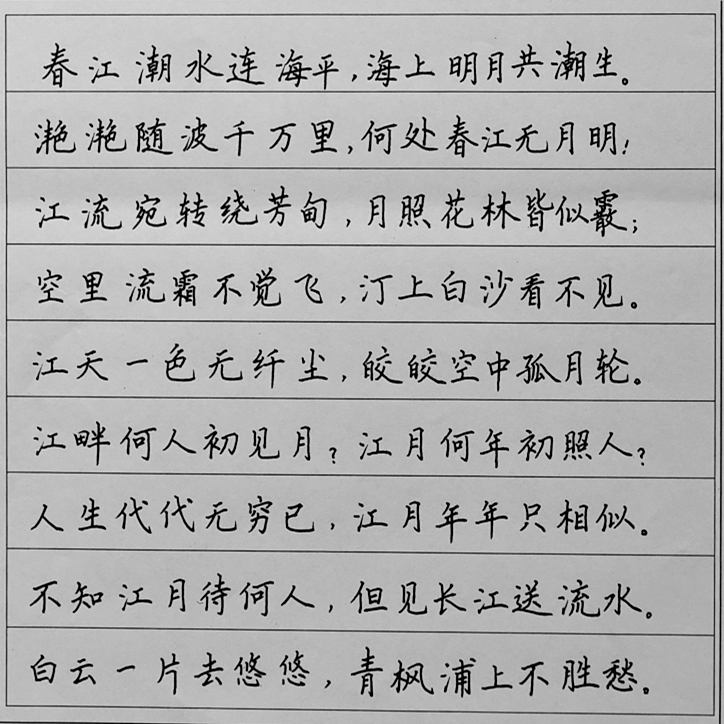 春江潮水连海平,海上明月共潮生。
滟滟随波千万里,何处春江无月明!
江流宛转绕芳甸,月照花林皆似霰;
空里流霜不觉飞,汀上白沙看不见。
江天一色无纤尘,皎皎空中孤月轮。
江畔何人初见月?江月何年初照人?
人生代代无穷已,江月年年只相似。
不知江月待何人,但见长江送流水。
白云一片去悠悠,青枫浦上不胜愁。